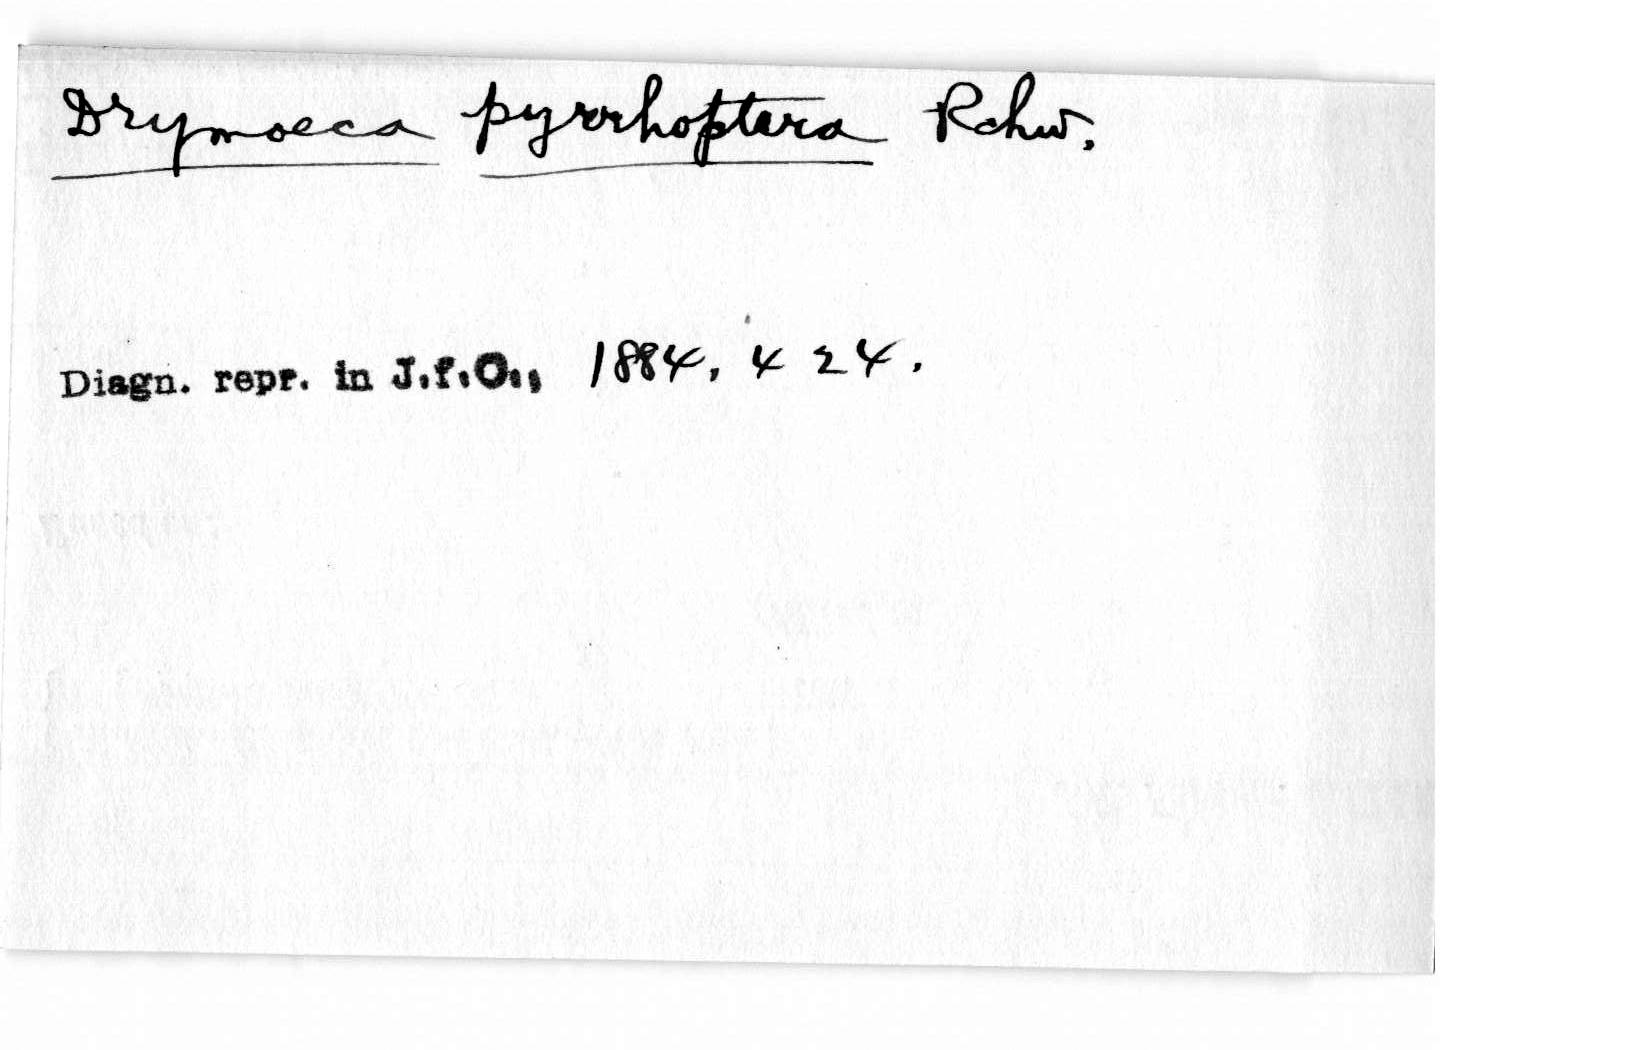 Drymoeca pyrrhoptera Rchw.
Diagn. repr. in J.f.O., 1884, 424.